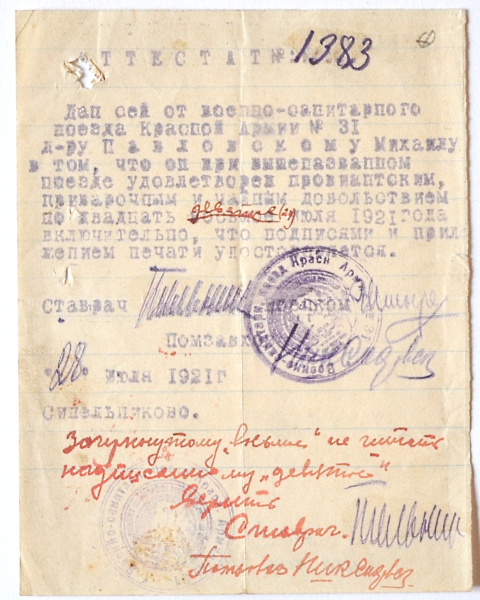 АТТЕСТАТ № 1383
Дан сей от военно-санитарного
поезда Красной Армии № 31
л-ру Павловскому Михаилу
в том, что он при вышеназванном
поезде удовлетворен провиантским,
приварочным и чайным довольствием
девятое (29)
по двадцать июля 1921 года
включительно, что подписями и прил
жением печати удостоверяется.
Ставрач
Помзавхоз
"28" июля 1921 г
Синельниково.
Зачеркнутому "восьмое" не читать
надписанному "девятое"
верить
Ставрач